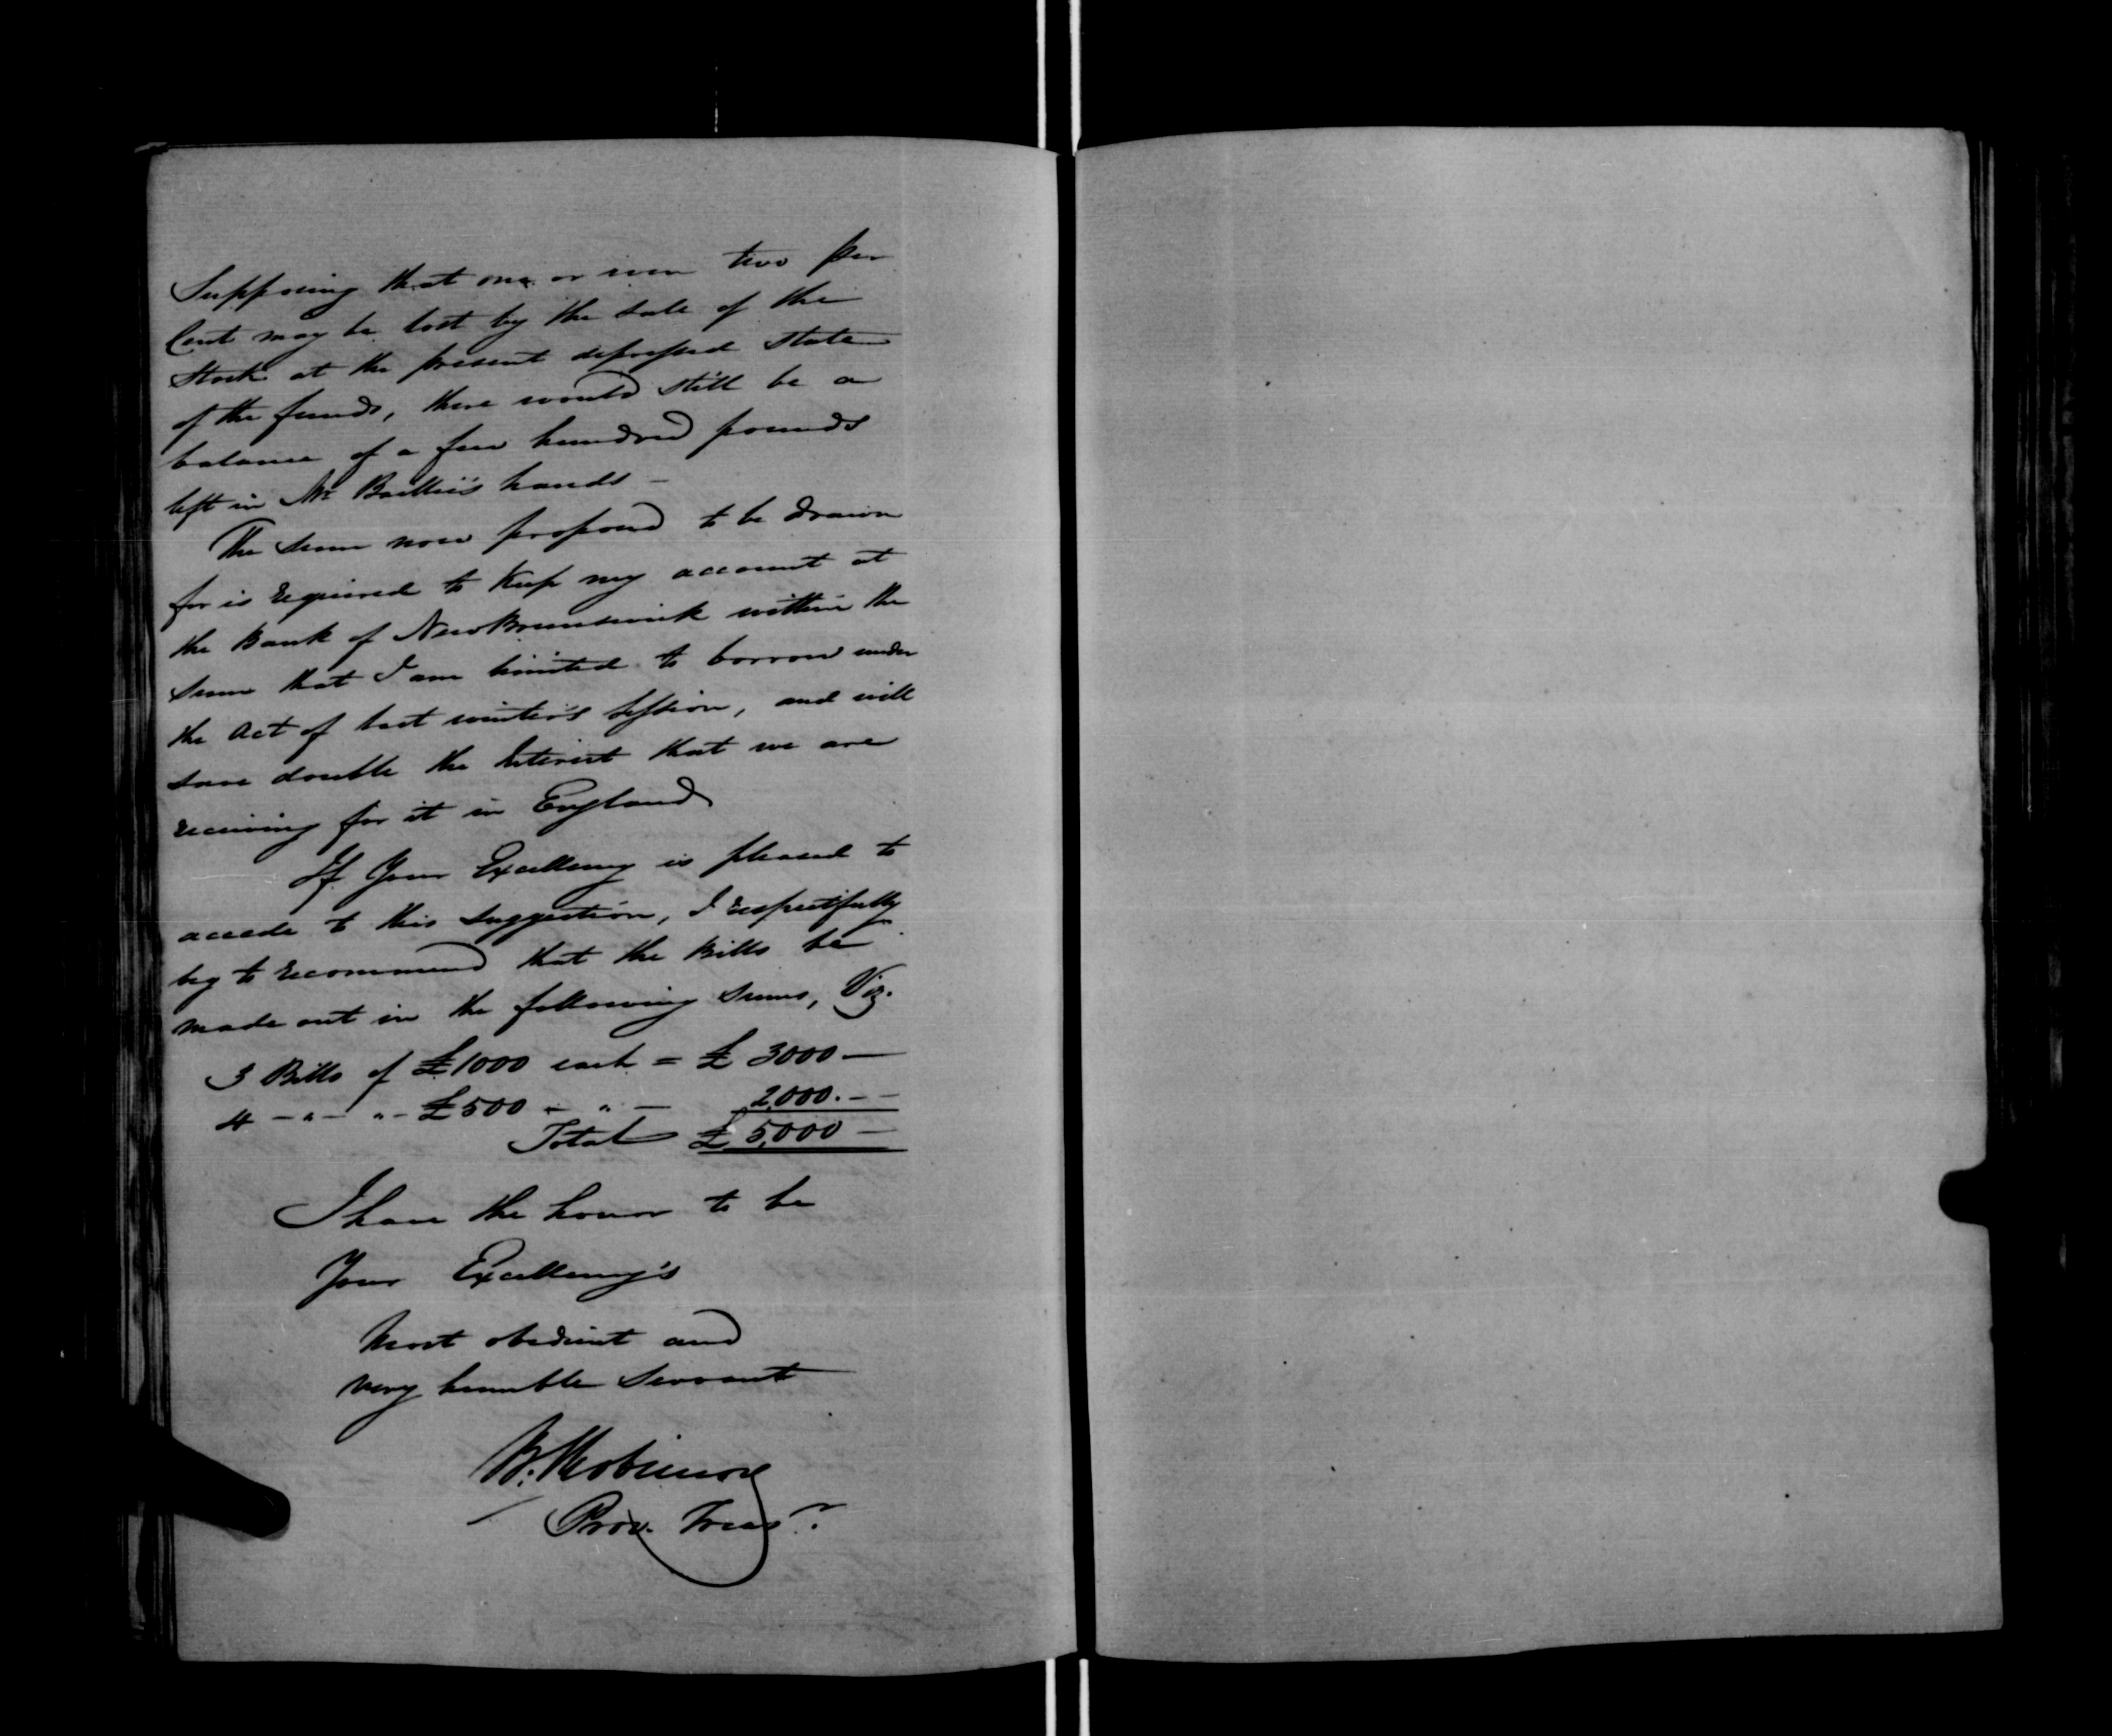 Supposing that one or even two per
Cent may be lost by the sale of the
Stock at the present depressed state
of the funds, there would still be a
balance of a few hundred pounds
left in Mr Baillie's hands —
The sum now proposed to be drawn
for is required to keep my account at
the Bank of New Brunswick within the
sum that I am limited to borrow under
the Act of last winter's Session, and will
save double the Interest that we are
receiving for it in England
If Your Excellency is pleased to
accede to this suggestion, I respectfully
beg to recommend that the Bills be
made out in the following sums, Viz.
3 Bills of £1000 each = £ 3000 —
4 — " — " — £500 — " — 2,000. — —
Total £ 5,000 —
I have the honor to be
Your Excellency's
Most obedient and
very humble Servant
B. Robinson
Prov. Treasr.